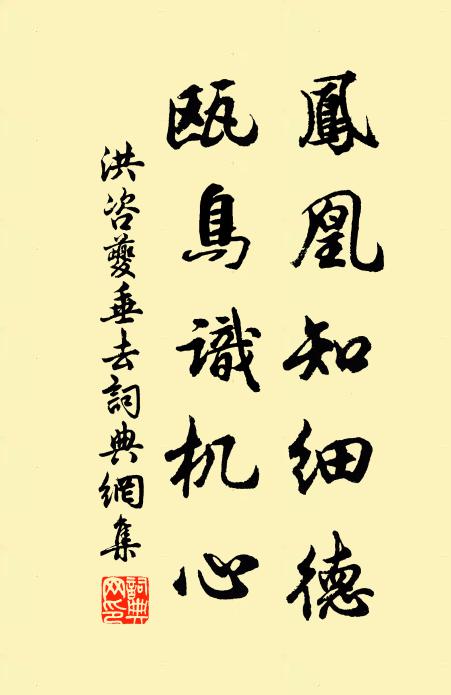 鳳凰知細德
瓯鳥識机心
洪咨夔垂去詞典網集
詞典
网印